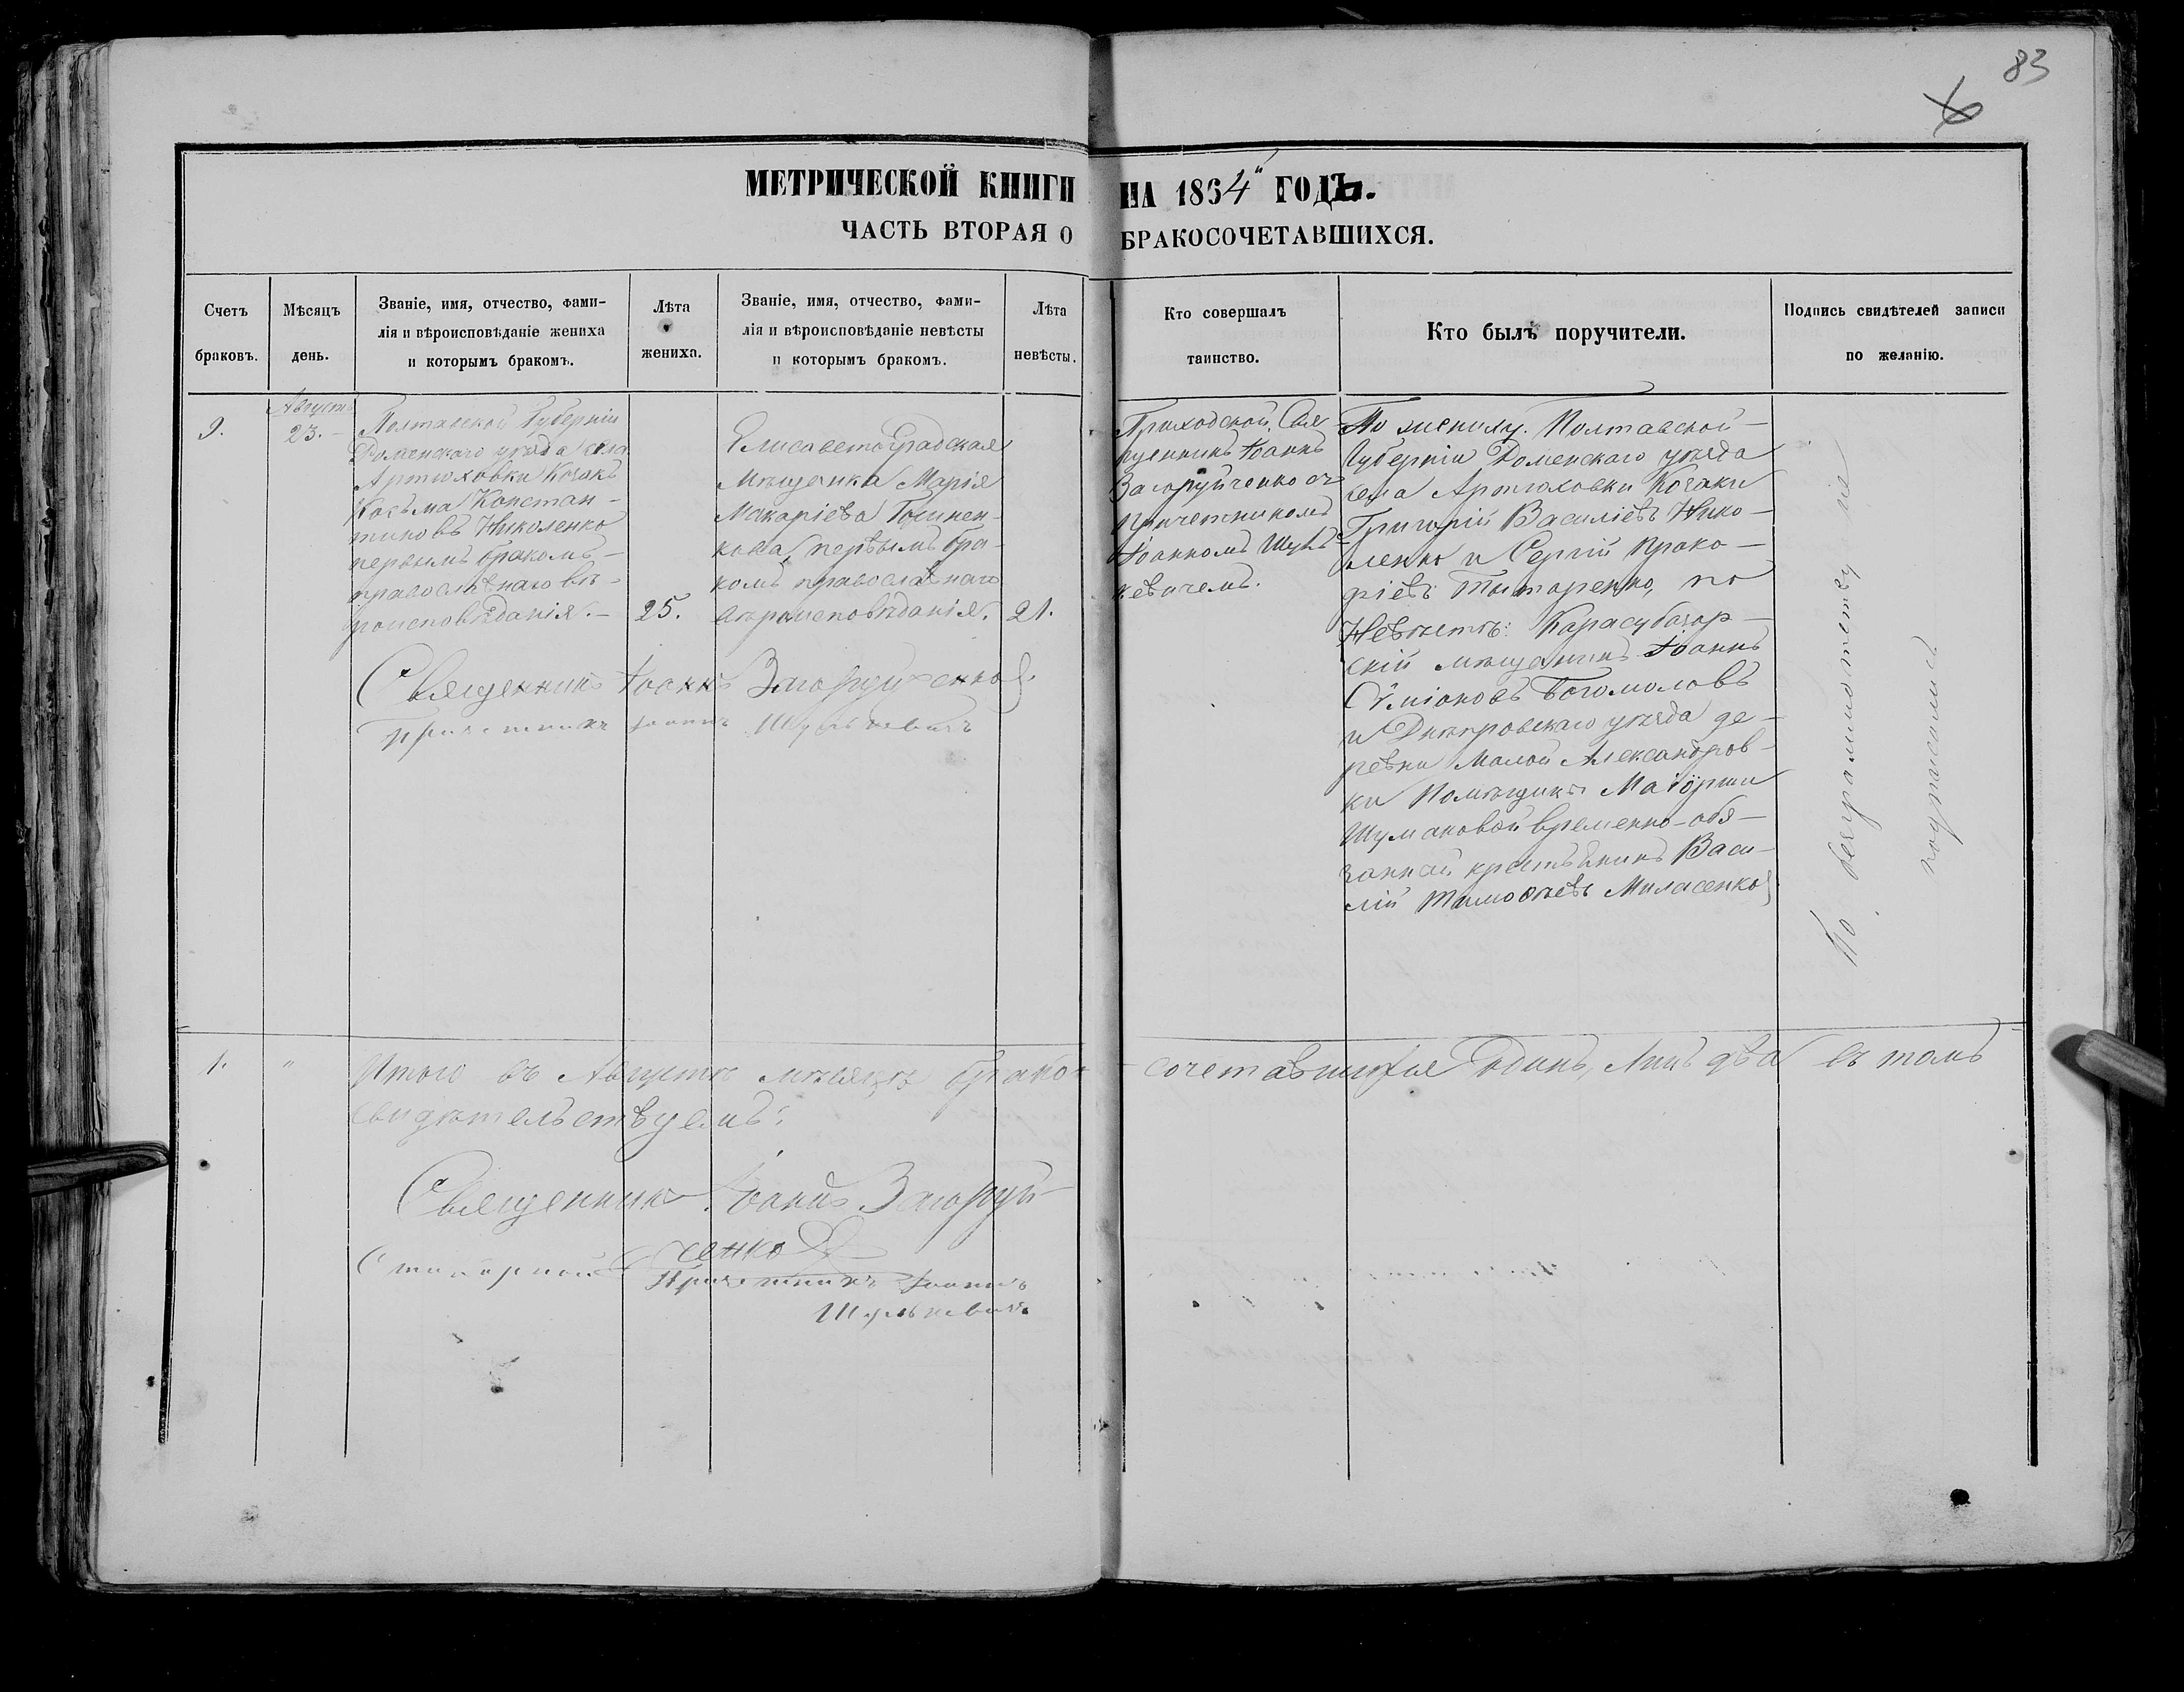 83
МЕТРИЧЕСКОЙ КНИГИ НА 1864 ГОДЪ.
ЧАСТЬ ВТОРАЯ О БРАКОСОЧЕТАВШИХСЯ.
Счетъ
браковъ.
Мѣсяцъ
день.
Званіе, имя, отчество, фами-
лія и вѣроисповѣданіе жениха
и которымъ бракомъ.
Лѣта
жениха.
Званіе, имя, отчество, фами-
лія и вѣроисповѣданіе невѣсты
и которымъ бракомъ.
Лѣта
невѣсты.
Кто совершалъ
таинство.
Кто былъ поручители.
Подпись свидѣтелей записи
по желанію.
9.
Августъ
23.
Полтавской Губерніи
Роменскаго уѣзда села
Артюховки Козакъ
Косьма Констан-
тиновъ Николенко
первымъ бракомъ
православнаго вѣ-
роисповѣданія.
25.
Елисаветоградская
Мѣщанка Марія
Макаріева
кова первымъ бра-
комъ православнаго
вѣроисповѣданія.
21.
Приходской Свя-
щенникъ Іоаннъ
Загоруйченко съ
причетникомъ
Іоанномъ Шуль-
кевичемъ.
По жениху: Полтавской
Губерніи Роменскаго уѣзда
села Артюховки Козаки
Григорій Василіевъ Нико-
ленко и Сергій Проко-
піевъ Титаренко, по
Невѣстѣ: Карасубазар-
скій мѣщанинъ Іоаннъ
Сѵміоновъ Богомоловъ
и Днѣпровскаго уѣзда де-
ревни Малой Александров-
ки Помѣщицы Маіорши
Шумаковой временно-обя-
занный крестьянинъ Васи-
лій Тимоѳѣевъ Миласенко
По безграмотству не
подписались
Священникъ Іоаннъ Загоруйченко
Причетникъ Іоаннъ Шулькевичъ
1. " Итого въ Августѣ мѣсяцѣ брако-сочетавшихся одинъ, лицъ два въ томъ
свидѣтельствуемъ:
Священникъ Іоаннъ Загоруй-
ченко
Причетникъ Іоаннъ
Шулькевичъ